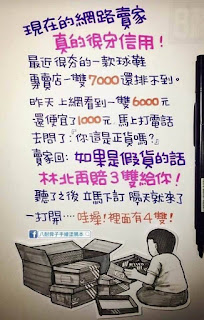 現在的網路賣家
真的很守信用！
最近很夯的一款球鞋
專賣店一雙7000還排不到。
昨天上網看到一雙6000元
還便宜了1000元 馬上打電話
去問了:『你這是正貨嗎?』
賣家回: 如果是假貨的話
林北再賠3雙給你!
聽了之後 立馬下訂 隔天就來了
一打開… 哇操! 裡面有4雙!